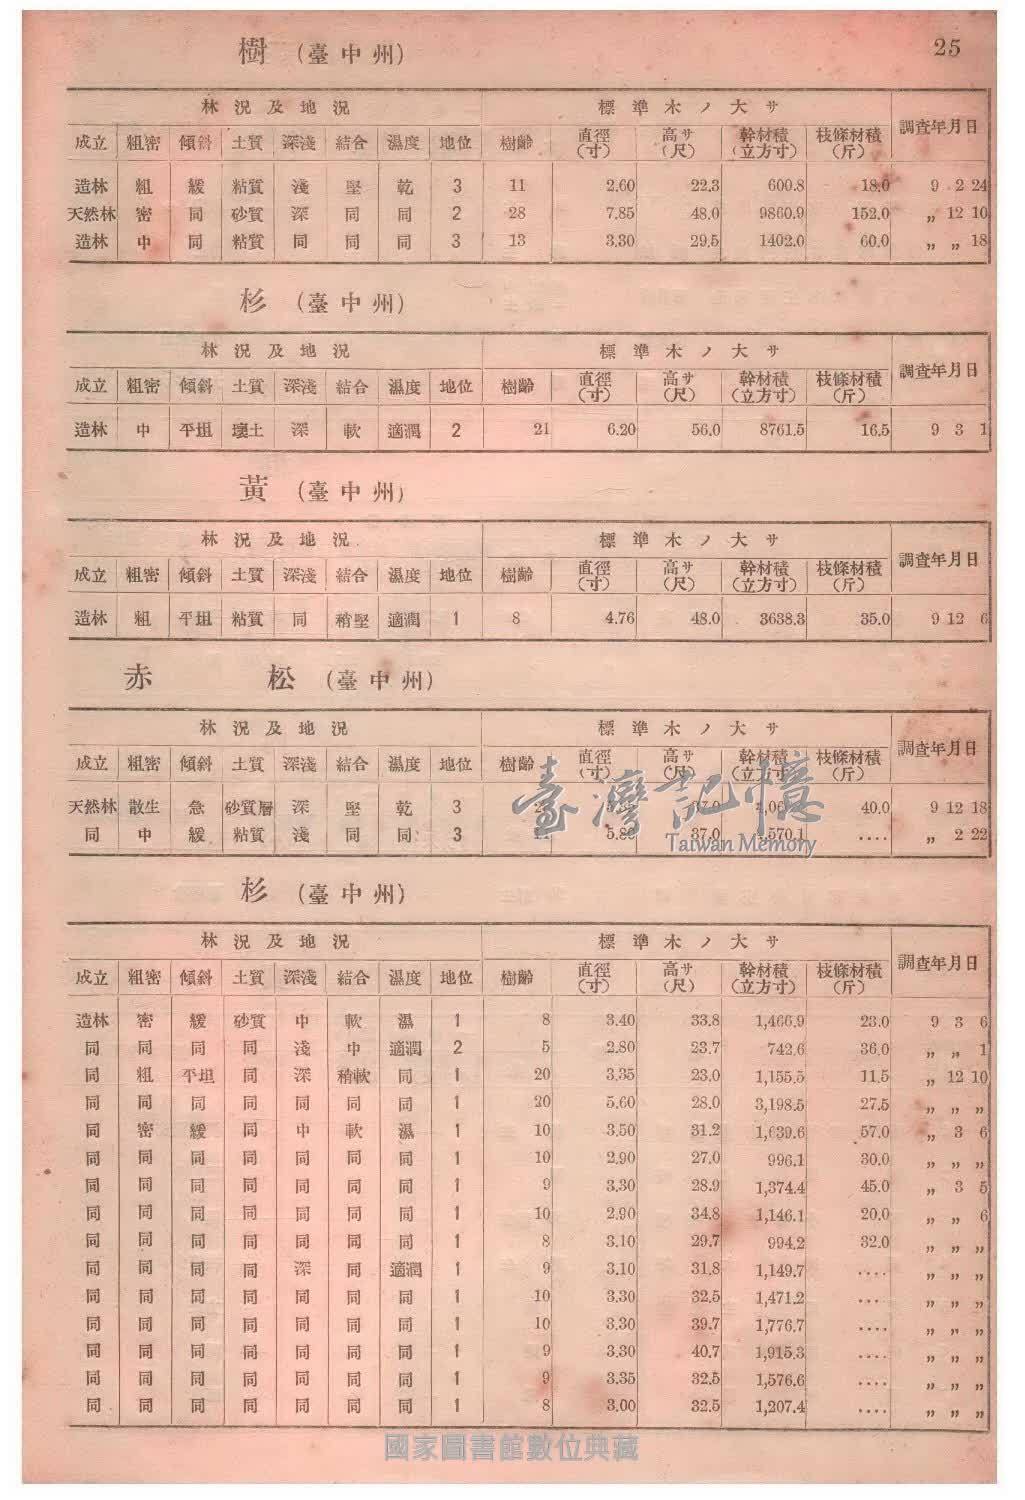 樹 (臺中州) 25
林況及地況 標準木ノ大サ 調查年月日
成立 粗密 傾斜 土質 深淺 結合 濕度 地位 樹齡 直徑(寸) 高サ(尺) 幹材積(立方寸) 枝條材積(斤)
造林 粗 緩 粘質 淺 堅 乾 3 11 2.60 22.3 600.8 18.0 9 2 24
天然林 密 同 砂質 深 同 同 2 28 7.85 48.0 9860.9 152.0 〃 12 10
造林 中 同 粘質 同 同 同 3 13 3.30 29.5 1402.0 60.0 〃 〃 18
杉 (臺中州)
林況及地況 標準木ノ大サ 調查年月日
成立 粗密 傾斜 土質 深淺 結合 濕度 地位 樹齡 直徑(寸) 高サ(尺) 幹材積(立方寸) 枝條材積(斤)
造林 中 平坦 壤土 深 軟 適潤 2 21 6.20 56.0 8761.5 16.5 9 3 1
黃 (臺中州)
林況及地況 標準木ノ大サ 調查年月日
成立 粗密 傾斜 土質 深淺 結合 濕度 地位 樹齡 直徑(寸) 高サ(尺) 幹材積(立方寸) 枝條材積(斤)
造林 粗 平坦 粘質 同 稍堅 適潤 1 8 4.76 48.0 3638.3 35.0 9 12 6
赤松 (臺中州)
林況及地況 標準木ノ大サ 調查年月日
成立 粗密 傾斜 土質 深淺 結合 濕度 地位 樹齡 直徑(寸) 高サ(尺) 幹材積(立方寸) 枝條材積(斤)
天然林 散生 急 砂質層 深 堅 乾 3 40.0 9 12 18
同 中 緩 粘質 淺 同 同 3 37.0 ‥‥ 〃 2 22
臺灣記憶
Taiwan Memory
杉 (臺中州)
林況及地況 標準木ノ大サ 調查年月日
成立 粗密 傾斜 土質 深淺 結合 濕度 地位 樹齡 直徑(寸) 高サ(尺) 幹材積(立方寸) 枝條材積(斤)
造林 密 緩 砂質 中 軟 濕 1 8 3.40 33.8 1,466.9 23.0 9 3 6
同 同 同 同 淺 中 適潤 2 5 2.80 23.7 742.6 36.0 〃 〃 1
同 粗 平坦 同 深 稍軟 同 1 20 3.35 23.0 1,155.5 11.5 〃 12 10
同 同 同 同 同 同 同 1 20 5.60 28.0 3,198.5 27.5 〃 〃 〃
同 密 緩 同 中 軟 濕 1 10 3.50 31.2 1,639.6 57.0 〃 3 6
同 同 同 同 同 同 同 1 10 2.90 27.0 996.1 30.0 〃 〃 〃
同 同 同 同 同 同 同 1 9 3.30 28.9 1,374.4 45.0 〃 3 5
同 同 同 同 同 同 同 1 10 2.90 34.8 1,146.1 20.0 〃 〃 6
同 同 同 同 同 同 同 1 8 3.10 29.7 994.2 32.0 〃 〃 〃
同 同 同 同 深 同 適潤 1 9 3.10 31.8 1,149.7 ‥‥ 〃 〃 〃
同 同 同 同 同 同 同 1 10 3.30 32.5 1,471.2 ‥‥ 〃 〃 〃
同 同 同 同 同 同 同 1 10 3.30 39.7 1,776.7 ‥‥ 〃 〃 〃
同 同 同 同 同 同 同 1 9 3.30 40.7 1,915.3 ‥‥ 〃 〃 〃
同 同 同 同 同 同 同 1 9 3.35 32.5 1,576.6 ‥‥ 〃 〃 〃
同 同 同 同 同 同 同 1 8 3.00 32.5 1,207.4 ‥‥ 〃 〃 〃
國家圖書館數位典藏